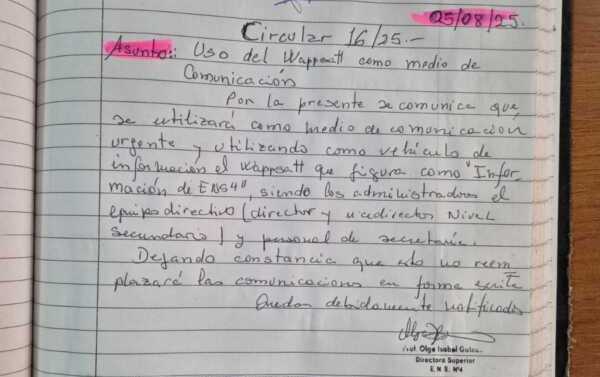 25/08/25.
Circular 16/25.-
Asunto: Uso del Wappsatt como medio de
Comunicación
Por la presente se comunica que,
se utilizará como medio de comunicacion
urgente y utilizando como vehículo de
información el Wappsatt que figura como "Infor-
mación de ENS4", siendo los administradores el
equipo directivo (director y vicedirector Nivel
secundario) y personal de secretaría.
Dejando constancia que esto no reem-
plazará las comunicaciones en forma escrita
Quedan debidamente notificados
Prof. Olga Isabel
Directora Superior
E.N.S. Nº4